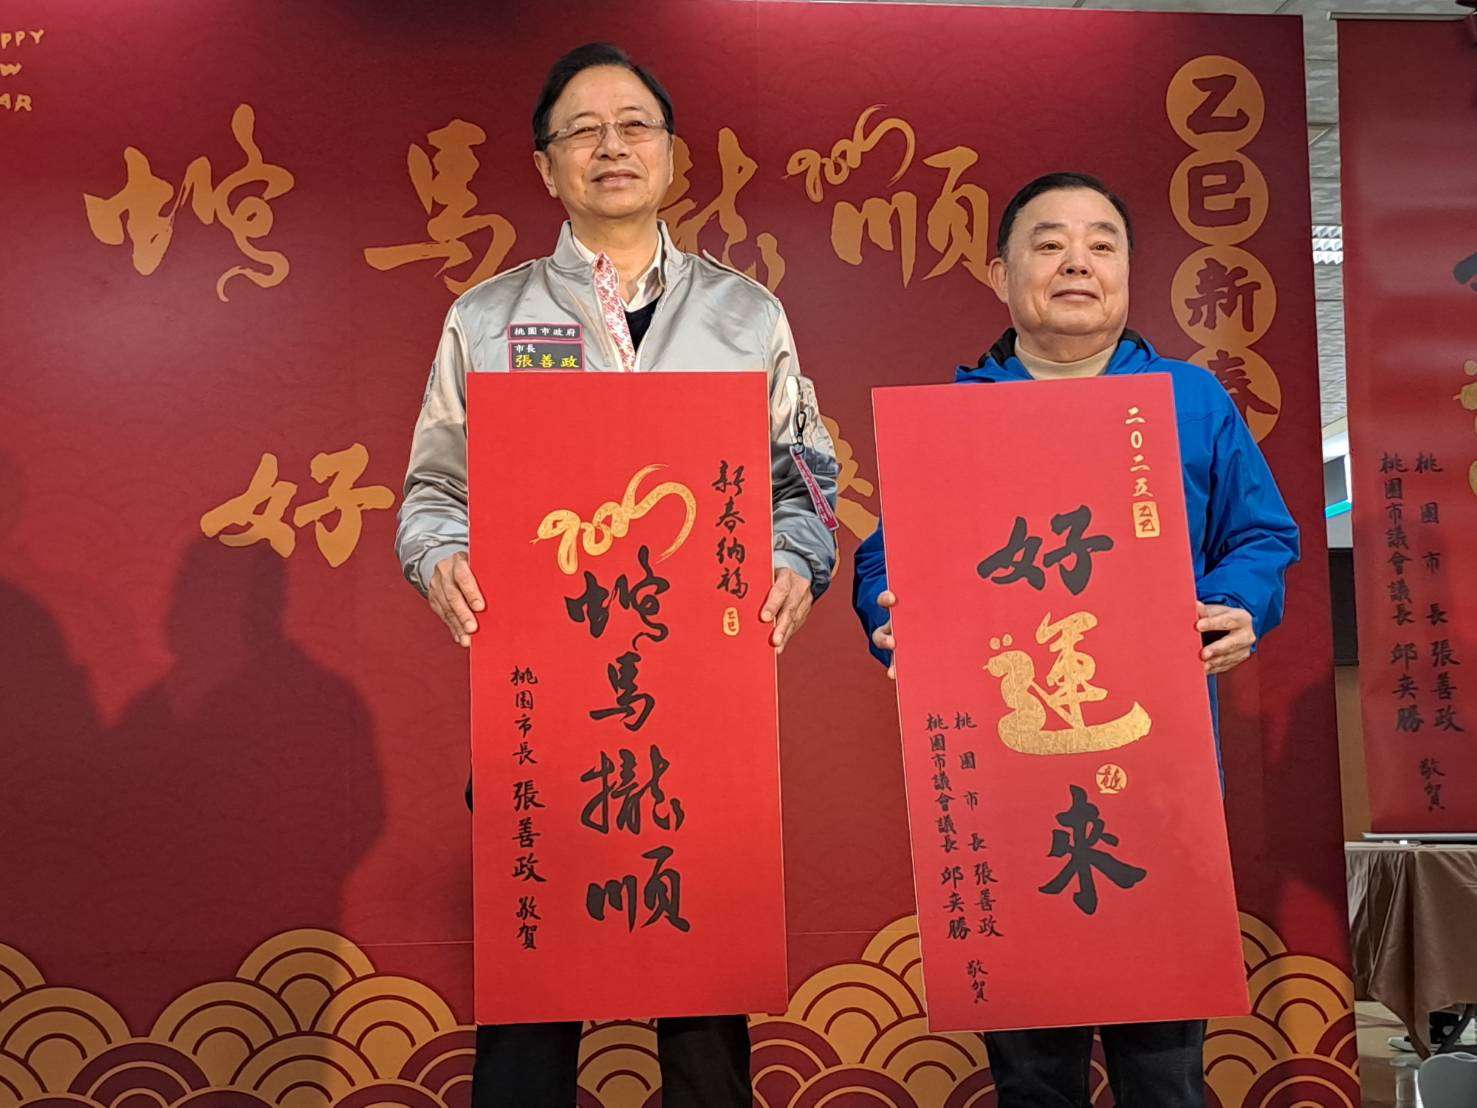 PPY
W
AR
蛇 馬 攏 2025 順
好
來
乙巳新春
桃園市政府
市長
張善政
新春納福
乙巳
2025
蛇馬攏順
桃園市長 張善政 敬賀
二〇二五 乙巳
好運來
桃園市長 張善政
桃園市議會議長 邱奕勝
敬賀
桃園市長 張善政
桃園市議會議長 邱奕勝
敬賀